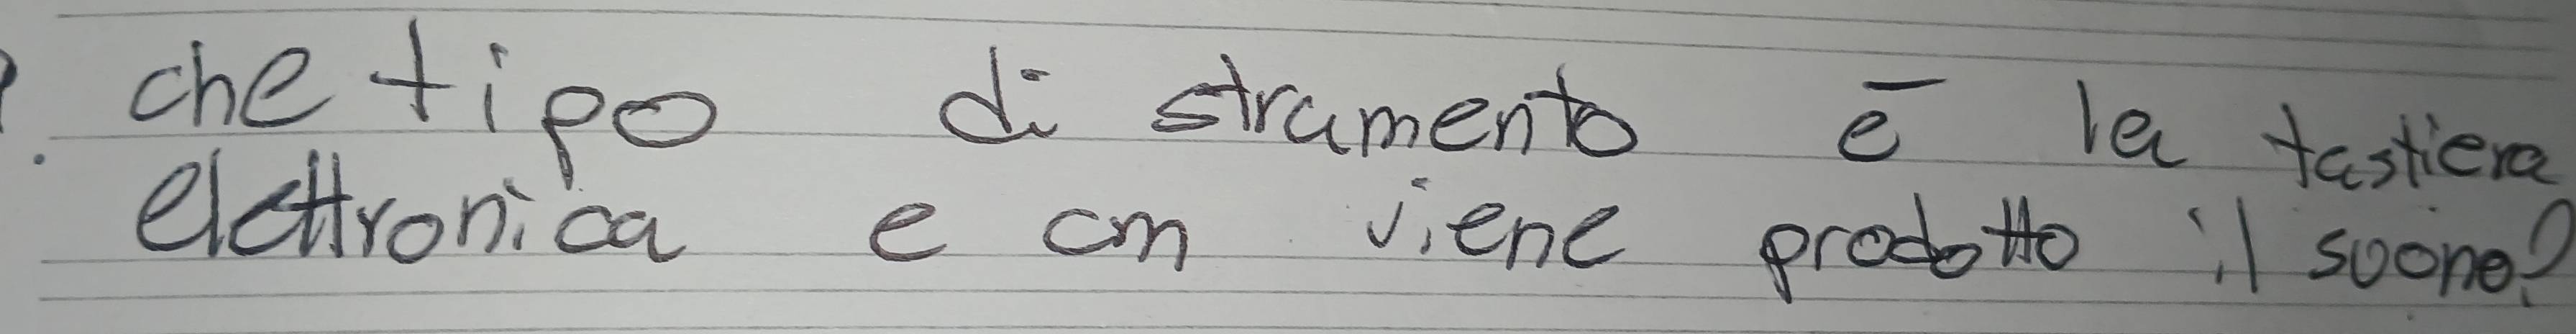 che tipo di strumento ē la tastiera
elettronica e cm viene prodotto il suono?